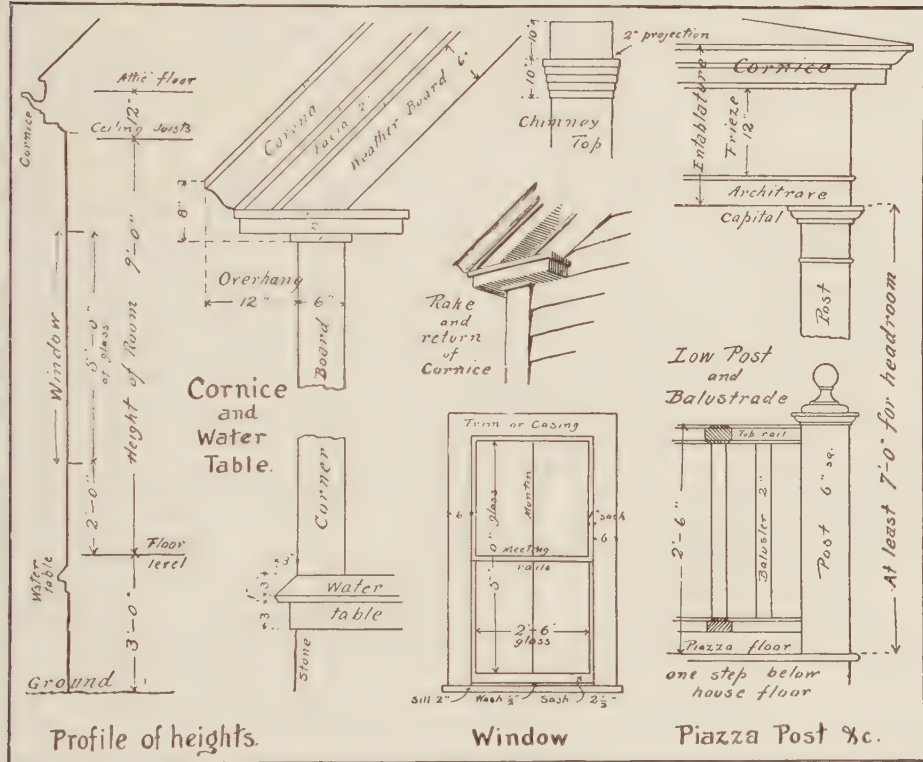 Attic floor
12"
Ceiling Joists
Cornice
Window
5'-0"
of glass
Height of Room 9'-0"
2'-0"
Floor
level
Water
table
3'-0"
Ground
Profile of heights.
Corona
Facia 2"
Weather Board
6"
8"
2"
Overhang
12"
6"
Board
Cornice
and
Water
Table.
Corner
3"
3"
1"
3
Water
table
Stone
10"
10"
2" projection
Chimney
Top
Rake
and
return
of
Cornice
Trim or Casing
6
5'-0" glass
Muntin
sash
6
Meeting
rails
2'-6"
glass
Sill 2"
Wash ½"
Sash
Window
Entablature
Cornice
Frieze
12"
Architrave
Capital
Post
Low Post
and
Balustrade
Top rail
2'-6"
Baluster 2"
Post 6" sq.
At least 7'-0" for headroom
Piazza floor
one step below
house floor
Piazza Post &c.